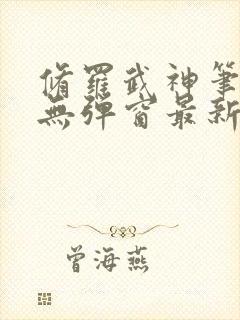 脩羅武神筆
無彈窗最新
曾海燕